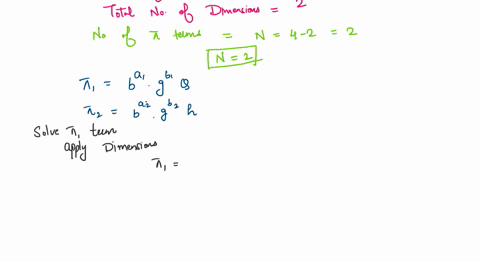 Total No. of Dimensions = 2
No of π terms = N = 4-2 = 2
N = 2
π₁ = b^a₁ . g^b₁ Q
π₂ = b^a₂ . g^b₂ h
Solve π₁ term
apply Dimensions
π₁ =